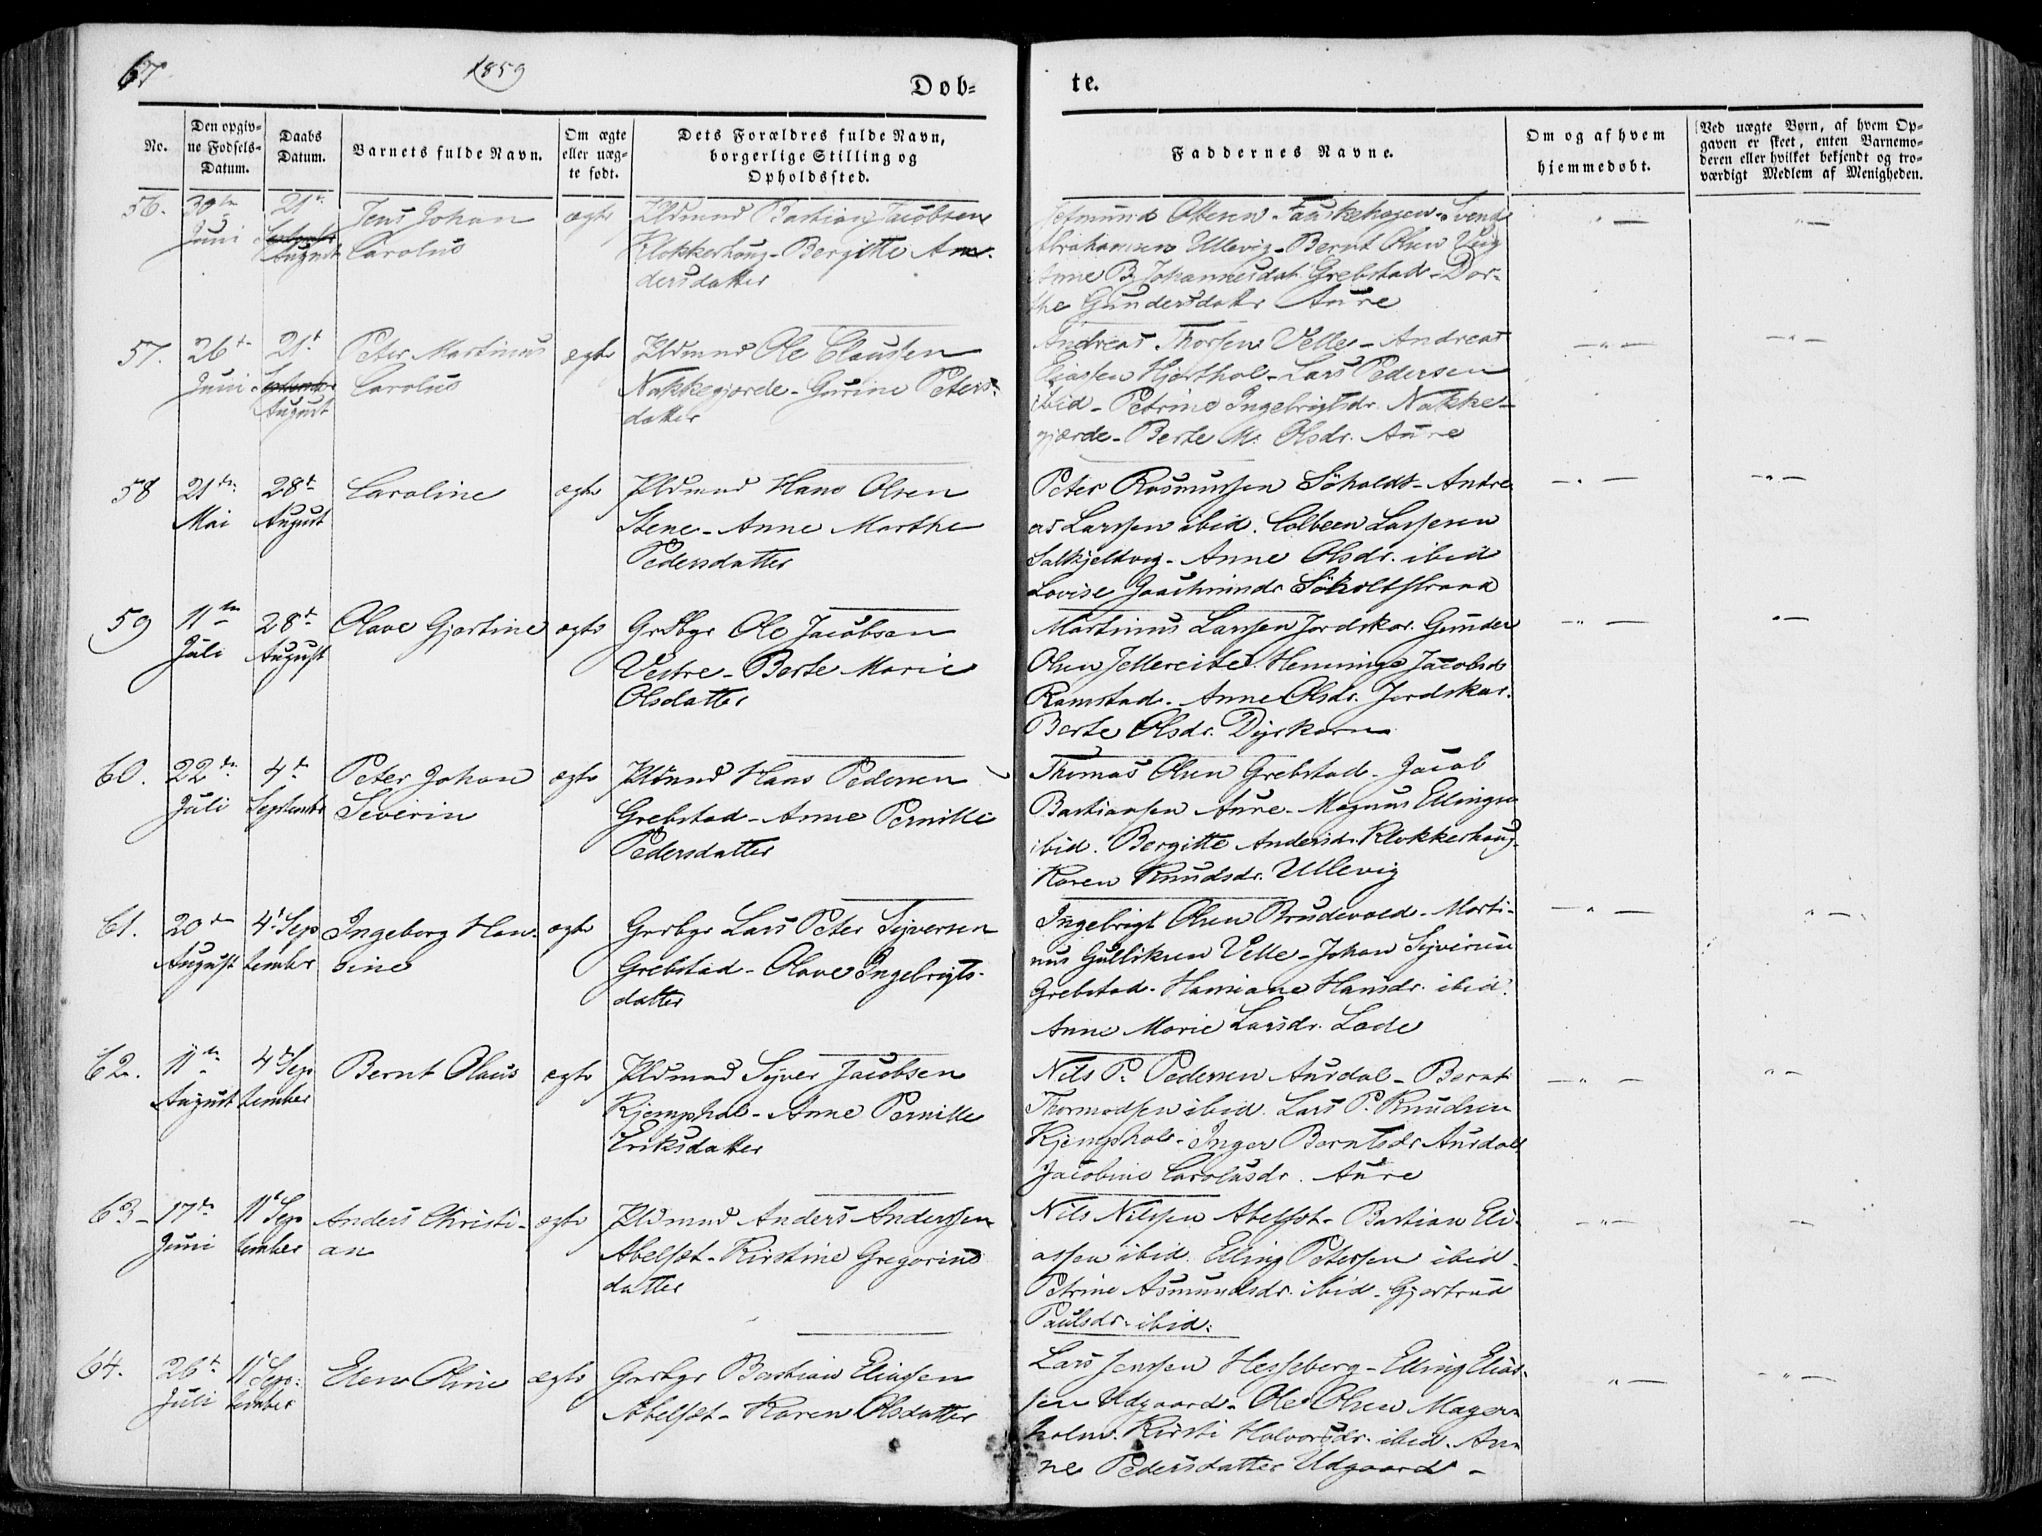 67
1859
Døb-
te.
No.
Den opgiv-
ne Fødsels-
Datum.
Daabs
Datum.
Barnets fulde Navn.
Om ægte
eller uæg-
te født.
Dets Forældres fulde Navn,
borgerlige Stilling og
Opholdssted.
Faddernes Navne.
Om og af hvem
hjemmedøbt.
Ved uægte Børn, af hvem Op-
gaven er skeet, enten Barnemo-
deren eller hvilket bekjendt og tro-
værdigt Medlem af Menigheden.
56.
30te
Juni
21de
August
Jens Johan
Carolus
ægte
Pldmand Bastian Jacobsen
Klokkerhaug - Bergitte An-
dersdatter
Ottesen - Fauskehagen - Svend
Abrahamsen Ullevig - Bernt Olsen Vig
Anne B. Johannesdat. Grebstad - Dor-
the Gundersdatr Aure
57.
26de
Juni
21d
August
Peter Martinus
Carolus
ægte
Pldmand Ole Clausen
Nakkegjerde - Gurine Peters-
datter
Andreas Thorsen Velle - Andreas
Eliassen Hjorthol - Lars Pedersen
ibid - Petrine Ingebrigtsdr. Nakke-
gjerde - Berte M. Olsdr. Aure
58
21de
Mai
28d
August
Caroline
ægte
Pldmand Hans Olsen
Stene - Anne Marthe
Pedersdatter
Peter Rasmussen Søholdt - Andre
as Larssen ibid. Colbeen Lassesen
Salkjeldvig - Anne Olsdr. ibid
Lovise Joachimsdr Søholtstrand
59
11te
Juli
28d
August
Olave Gjertine
ægte
Grdbgr Ole Jacobsen
Vestre - Berte Marie
Olsdatter
Martinus Larssen Jordskar. Gunder
Olsen Jellereite. Hemming Jacobsdr
Ramstad. Anne Olsdr. Jordskar.
Berte Olsdr. Dyrkorn
60.
22de
Juli
4de
September
Peter Johan
Severin
ægte
Pldmand Hans Pedersen
Grebstad - Anne Pernille
Pedersdatter
Thomas Olsen Grebstad - Jacob
Bastiansen Aure - Magnus Ellingsen
ibid. Bergitte Andersdr. Klokkerhaug -
Karen Knudsdr. Ullevig
61.
20de
August
4d Sep
tember
Ingeborg Han-
sine
ægte
Grdbgr Lars Peter Syversen
Grebstad - Olave Ingebrigts-
datter
Ingebrigt Olsen Brudevold - Marti-
nus Gulliksen Velle - Johan Syversen
Grebstad - Hansine Hansdr. ibid.
Anne Marie Larsdr. Lade
62.
11te
August
4d Sep
tember
Bernt Olaus
ægte
Pldmand Syver Jacobsen
Kjemphol - Anne Pernille
Eriksdatter
Nils P. Pedersen Aurdal - Bernt
Thormodsen ibid. Lars P. Knudsen
Kjemphol - Inger Berntsdr Aurdal
Jacobine Carolusdr. Aure
63-
17de
Juni
11t Sep
tember
Anders Christi-
an
ægte
Pldmand Anders Anderssen
Abelset - Kirstine Gregorius
datter
Nils Nilssen Abelset - Bastian Eli-
assen ibid. Elling Petersen ibid -
Petrine Asmundsdr. ibid - Gjertrud
Paulsdr. ibid.
64.
26d
Juli
11t Sep-
tember
Elen Oline
ægte
Grdbgr Bastian Eliassen
Abelset - Karen Olsdatter
Lars Jenssen Hesseberg - Elling Elias-
sen Udgaard - Ole Olsen Mager-
holm. Kirsti Halvorsdr. ibid. An-
ne Pedersdatter Udgaard -